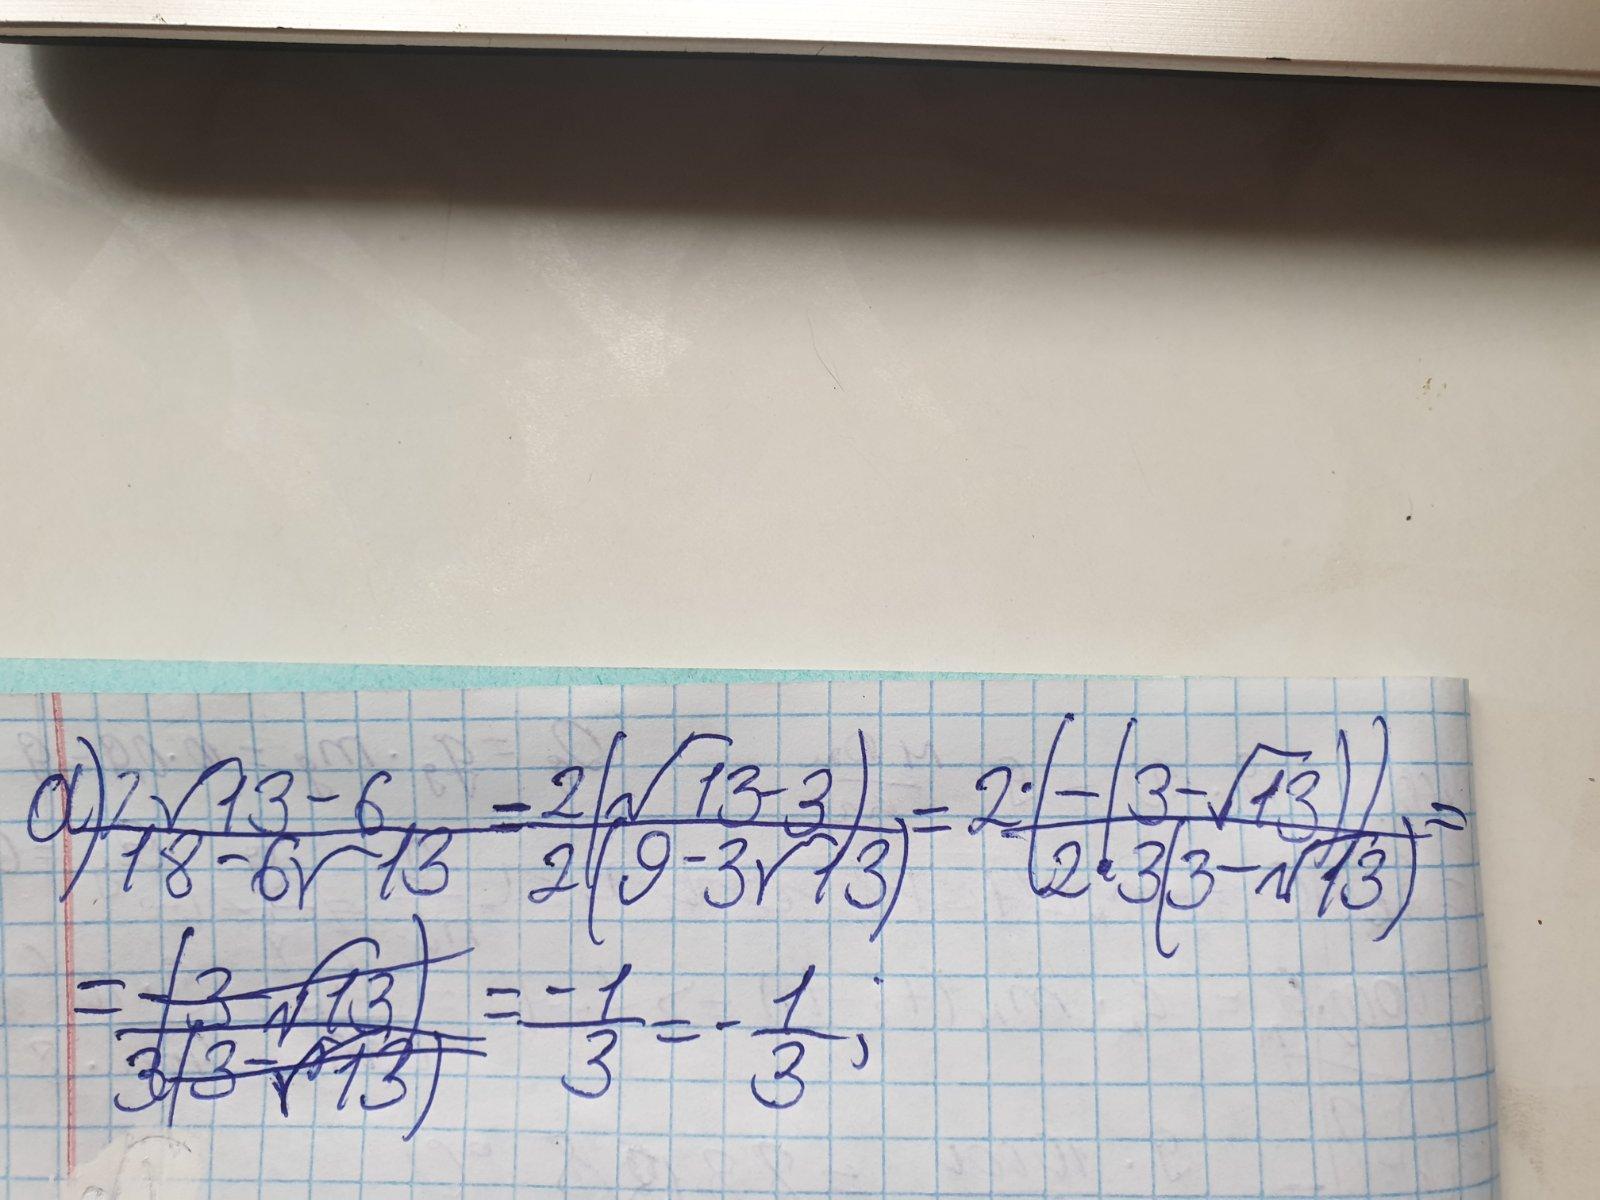 а) (2√13-6)/(18-6√13) = 2(√13-3)/2(9-3√13) = 2·(-(3-√13))/2·3(3-√13) =
= -(3-√13)/3(3-√13) = -1/3 = -1/3;